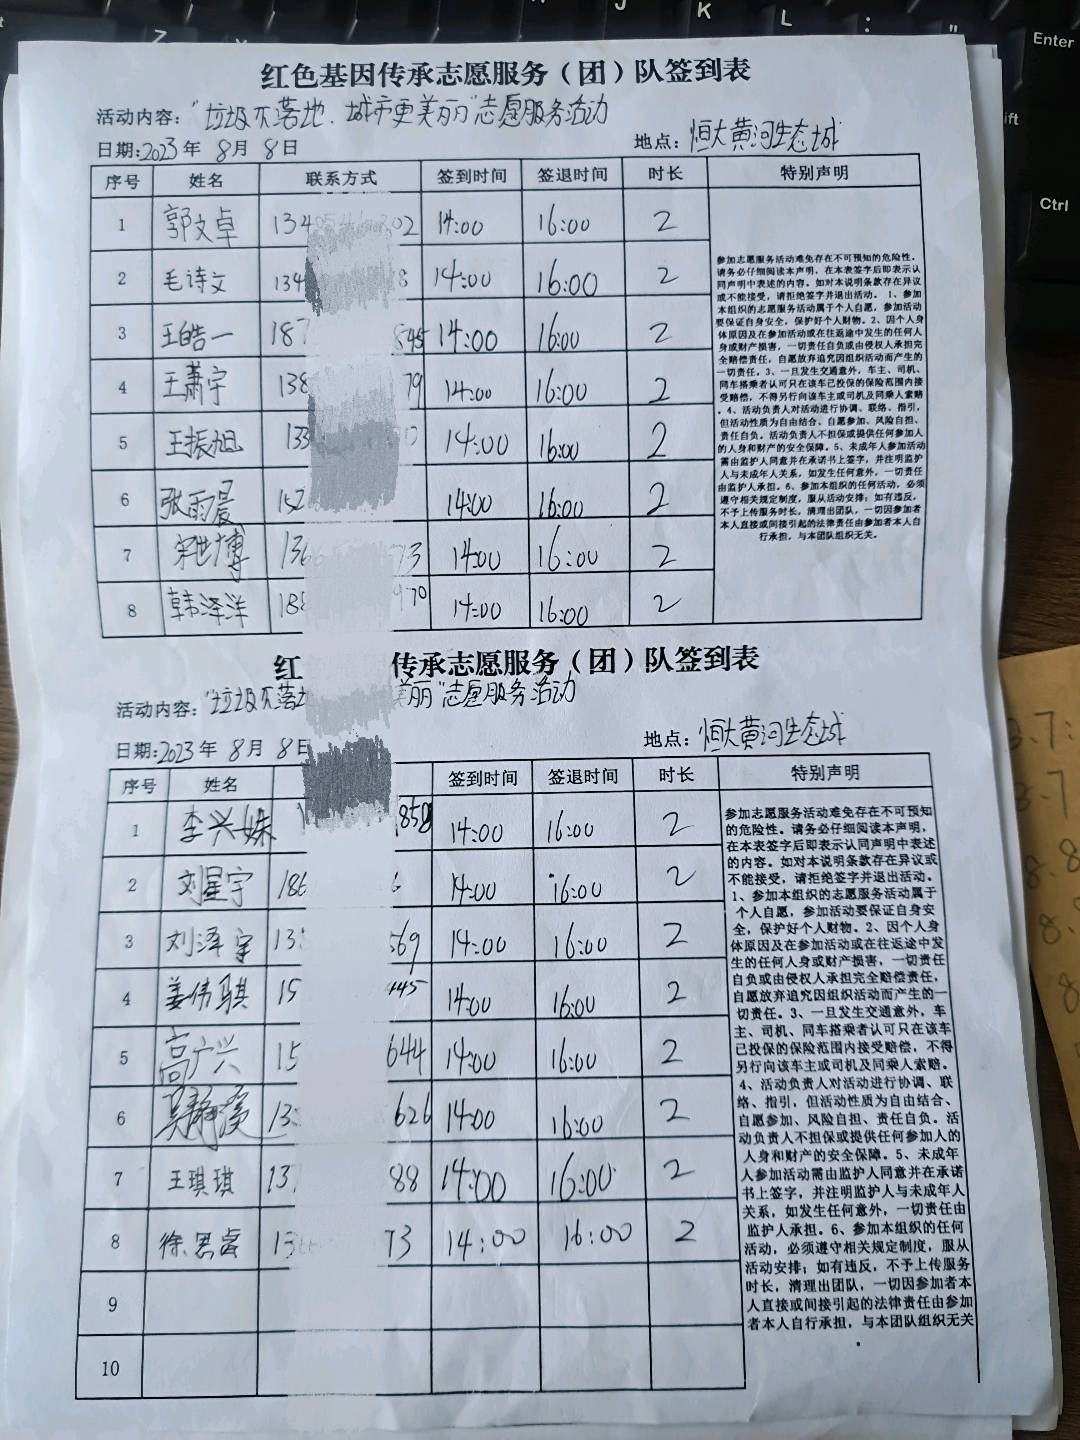 红色基因传承志愿服务（团）队签到表
活动内容："垃圾不落地.城市更美丽"志愿服务活动
日期:2023年 8月 8日 地点：恒大黄河生态城
序号 姓名 联系方式 签到时间 签退时间 时长 特别声明
1 郭文卓 134 302 14:00 16:00 2
2 毛诗文 134 8 14:00 16:00 2
3 王皓一 187 545 14:00 16:00 2
4 王萧宇 138 79 14:00 16:00 2
5 王振旭 133 14:00 16:00 2
6 张雨晨 152 14:00 16:00 2
7 宋世博 136 73 14:00 16:00 2
8 韩泽洋 188 970 14:00 16:00 2
参加志愿服务活动难免存在不可预知的危险性。
请务必仔细阅读本声明，在本表签字后即表示认
同声明中表述的内容。如对本说明条款存在异议
或不能接受，请拒绝签字并退出活动。 1、参加
本组织的志愿服务活动属于个人自愿，参加活动
要保证自身安全，保护好个人财物。2、因个人身
体原因及在参加活动或在往返途中发生的任何人
身或财产损害，一切责任自负或由侵权人承担完
全赔偿责任，自愿放弃追究因组织活动而产生的
一切责任。3、一旦发生交通意外，车主、司机、
同车搭乘者认可只在该车已投保的保险范围内接
受赔偿，不得另行向该车主或司机及同乘人索赔
。4、活动负责人对活动进行协调、联络、指引，
但活动性质为自由结合、自愿参加、风险自担、
责任自负。活动负责人不担保或提供任何参加人
的人身和财产的安全保障。5、未成年人参加活动
需由监护人同意并在承诺书上签字，并注明监护
人与未成年人关系，如发生任何意外，一切责任
由监护人承担。6、参加本组织的任何活动，必须
遵守相关规定制度，服从活动安排；如有违反，
不予上传服务时长，清理出团队，一切因参加者
本人直接或间接引起的法律责任由参加者本人自
行承担，与本团队组织无关。
红 传承志愿服务（团）队签到表
活动内容："垃圾不落地 美丽"志愿服务活动
日期:2023年 8月 8日 地点：恒大黄河生态城
序号 姓名 签到时间 签退时间 时长 特别声明
1 李兴姝 858 14:00 16:00 2
2 刘星宇 186 6 14:00 16:00 2
3 刘泽宇 13 569 14:00 16:00 2
4 姜伟骐 15 445 14:00 16:00 2
5 高广兴 15 644 14:00 16:00 2
6 13 626 14:00 16:00 2
7 王琪琪 13 88 14:00 16:00 2
8 徐思睿 13 73 14:00 16:00 2
9
10
参加志愿服务活动难免存在不可预知
的危险性。请务必仔细阅读本声明，
在本表签字后即表示认同声明中表述
的内容。如对本说明条款存在异议或
不能接受，请拒绝签字并退出活动。
1、参加本组织的志愿服务活动属于
个人自愿，参加活动要保证自身安
全，保护好个人财物。2、因个人身
体原因及在参加活动或在往返途中发
生的任何人身或财产损害，一切责任
自负或由侵权人承担完全赔偿责任，
自愿放弃追究因组织活动而产生的一
切责任。3、一旦发生交通意外，车
主、司机、同车搭乘者认可只在该车
已投保的保险范围内接受赔偿，不得
另行向该车主或司机及同乘人索赔。
4、活动负责人对活动进行协调、联
络、指引，但活动性质为自由结合、
自愿参加、风险自担、责任自负。活
动负责人不担保或提供任何参加人的
人身和财产的安全保障。5、未成年
人参加活动需由监护人同意并在承诺
书上签字，并注明监护人与未成年人
关系，如发生任何意外，一切责任由
监护人承担。6、参加本组织的任何
活动，必须遵守相关规定制度，服从
活动安排；如有违反，不予上传服务
时长，清理出团队，一切因参加者本
人直接或间接引起的法律责任由参加
者本人自行承担，与本团队组织无关
.
Z
J
K
L
Enter
Ctrl